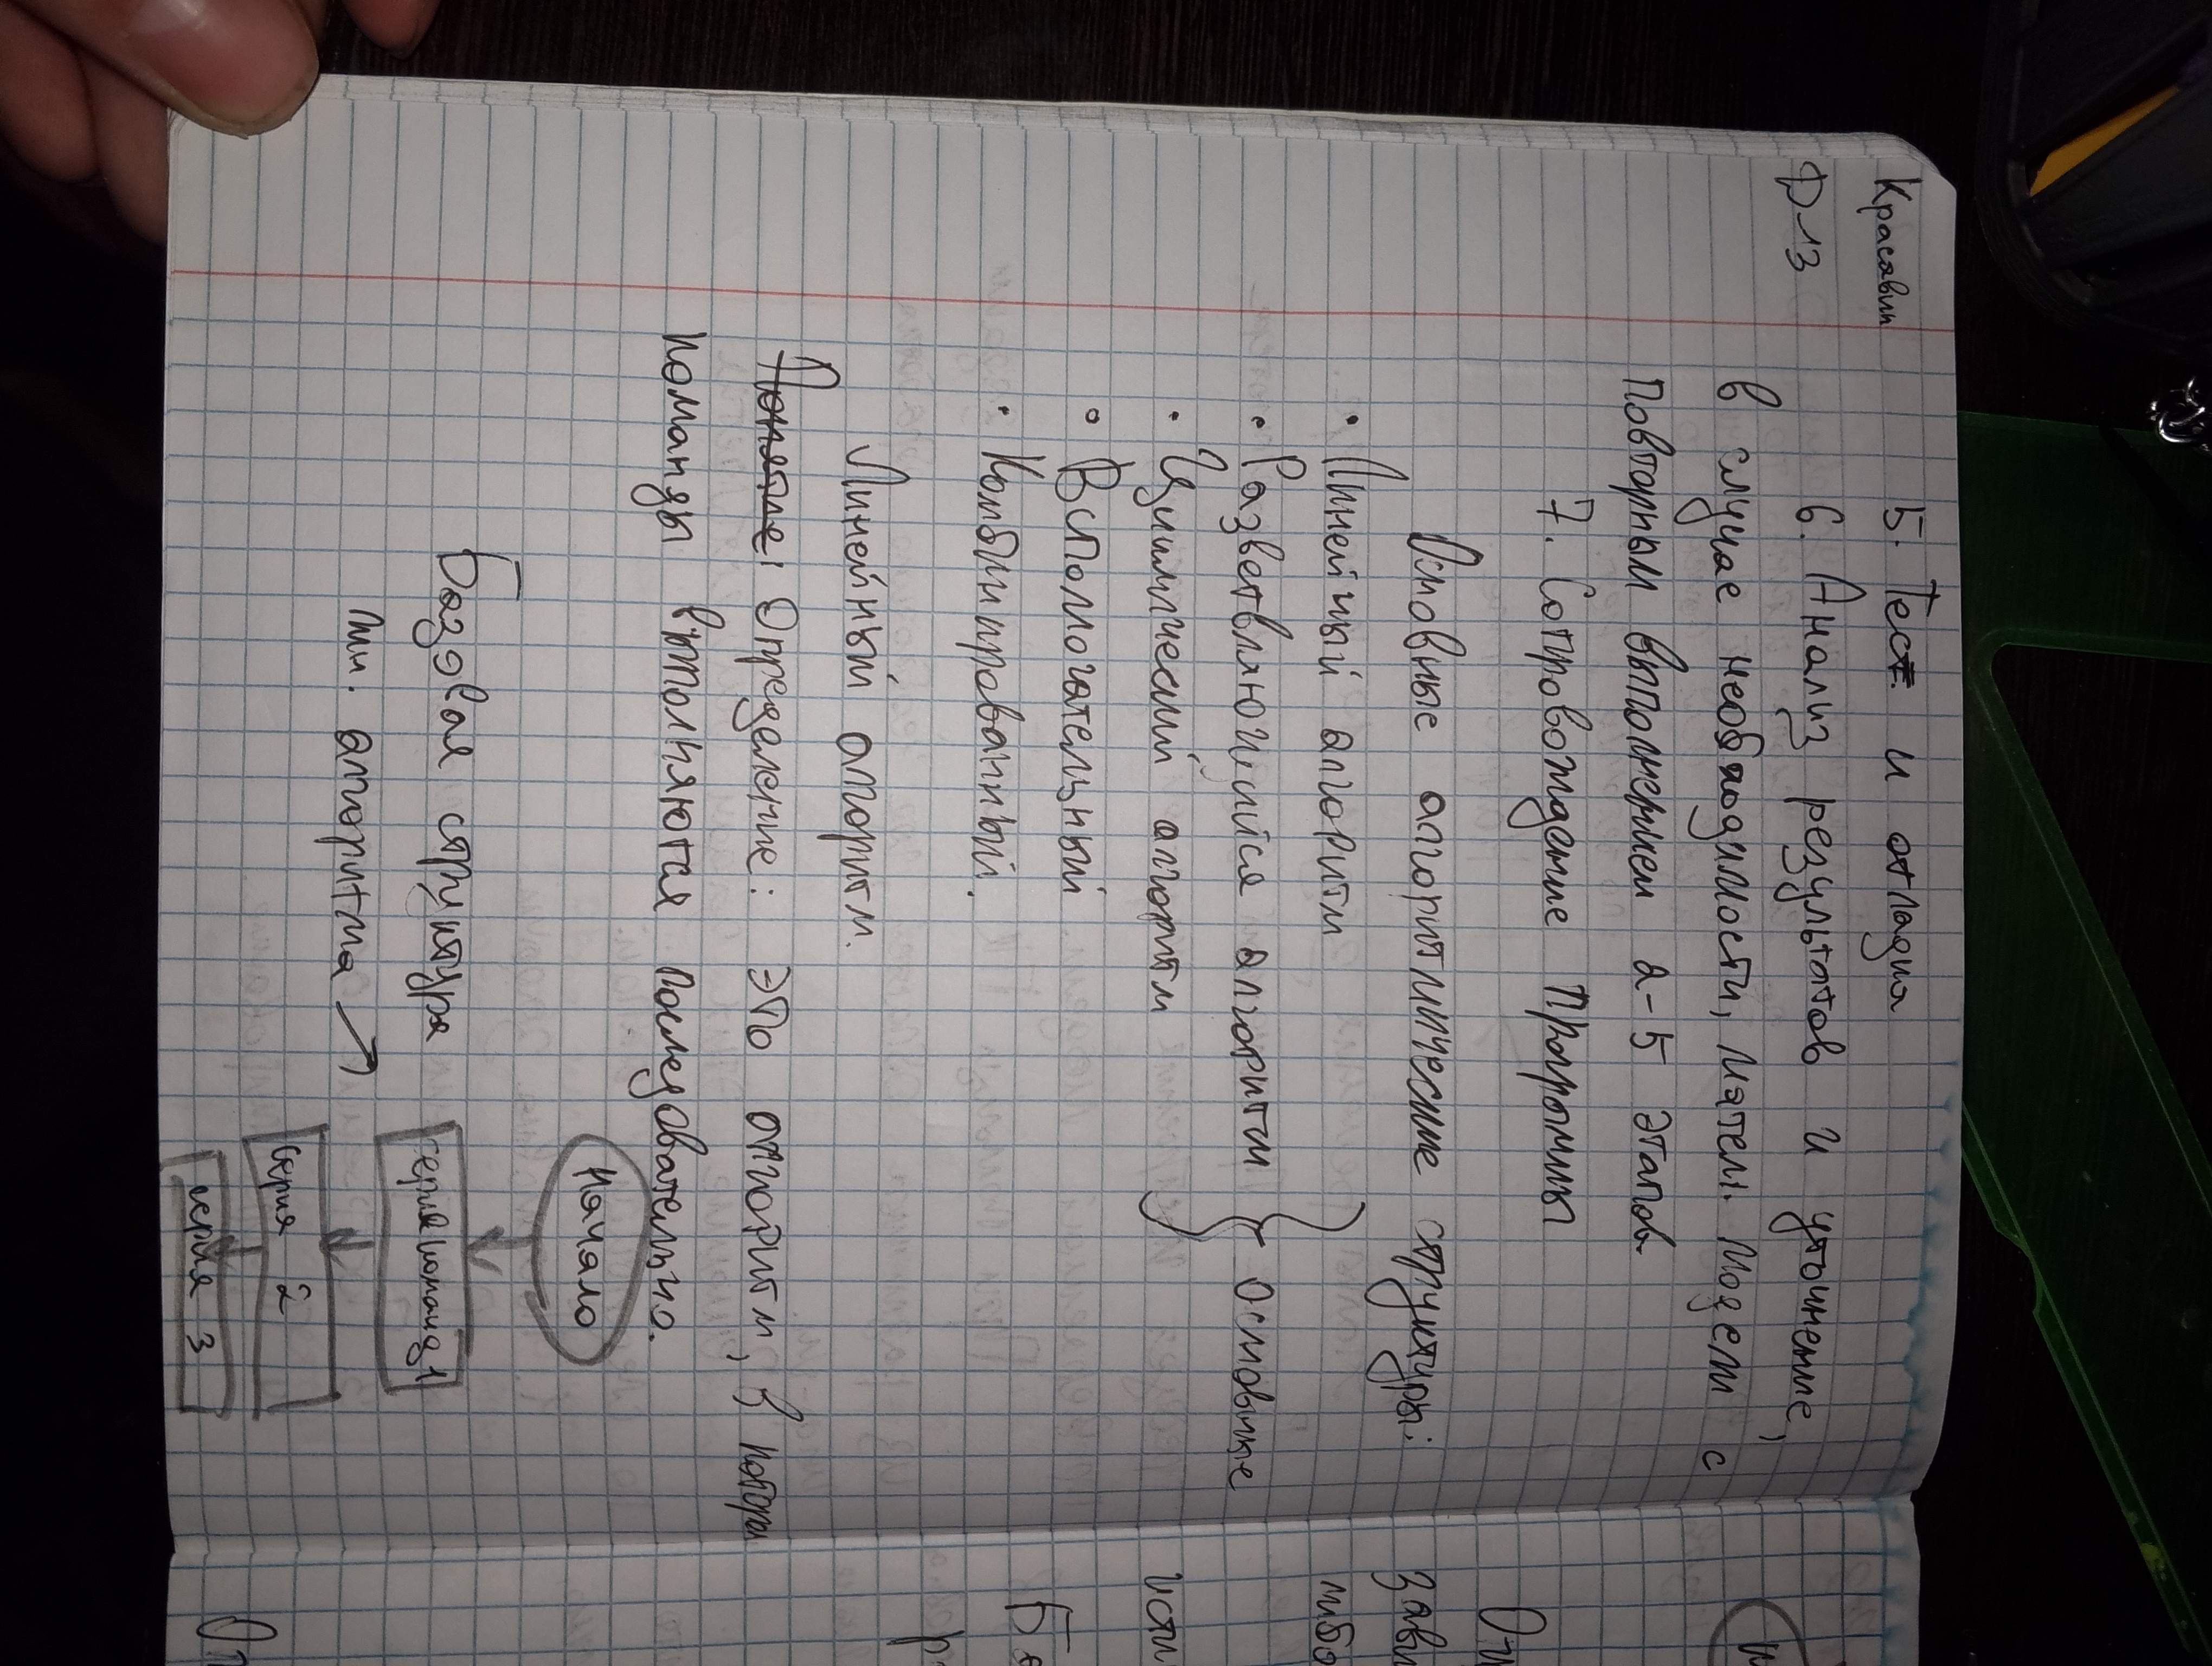 Красавин
Ф-13
5. Тест и отладка
6. Анализ результатов и уточнение,
в случае необходимости, матем. модели с
повторным выполнением 2-5 этапов
7. Сопровождение программы
Основные алгоритмические структуры:
• Линейный алгоритм
• Разветвляющийся алгоритм } основные
• Циклический алгоритм
• Вспомогательный
• Комбинированный.
Линейный алгоритм.
Понятие: Определение: это алгоритм, в котором
команды выполняются последовательно.
Базовая структура
лин. алгоритма →
Начало
серия команд 1
серия 2
серия 3
Оп
зави
либо
исти
Ба